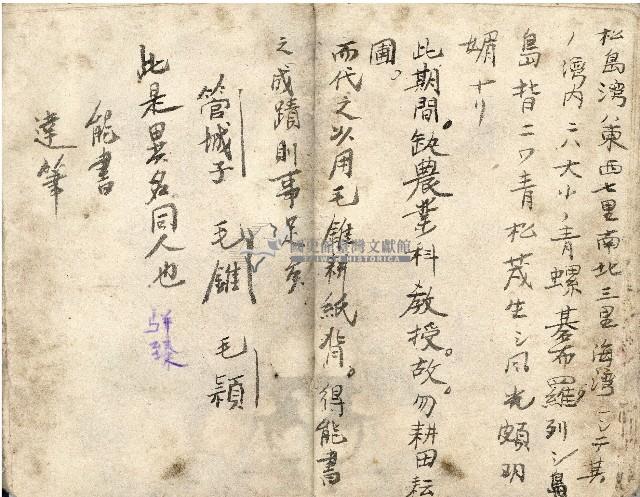 松島湾ハ東西七里南北三里海湾ニシテ其
ノ湾内ニハ大小ノ青螺碁布羅列シ島
島皆ニワ青松茂生シ风光頗明
媚ナリ
此期間、缺農業科教授。故、勿耕田耘
圃。
而代之以用毛錐耕紙背。得能書
之成蹟則事深矣
管城子 毛錐 毛穎
此是異名同人也
駢臻
能書
達筆
國史館臺灣文獻館
TAIWAN HISTORICA